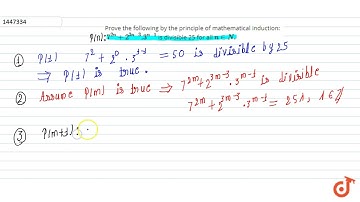 1447334
Prove the following by the principle of mathematical induction:
P(n): 7²ⁿ + 2³ⁿ⁻³.3ⁿ⁻¹ is divisible 25 for all n ∈ N
① P(1) 7² + 2⁰ · 3¹⁻¹ = 50 is divisible by 25
⇒ P(1) is true.
② Assume P(m) is true ⇒ 7²ᵐ + 2³ᵐ⁻³ · 3ᵐ⁻¹ is divisible
7²ᵐ + 2³ᵐ⁻³ · 3ᵐ⁻¹ = 25λ, λ ∈
③ P(m+1):
doubtnut